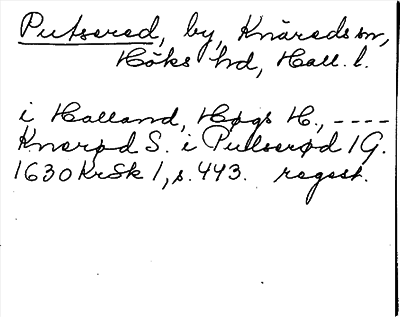 Putsered, by, Knäreds sn,
Höks hd, Hall. l.
i Halland, Høgs H., ----
Knerød S. i Putserød 1 G.
1630 KrSk 1, s. 443. regest.